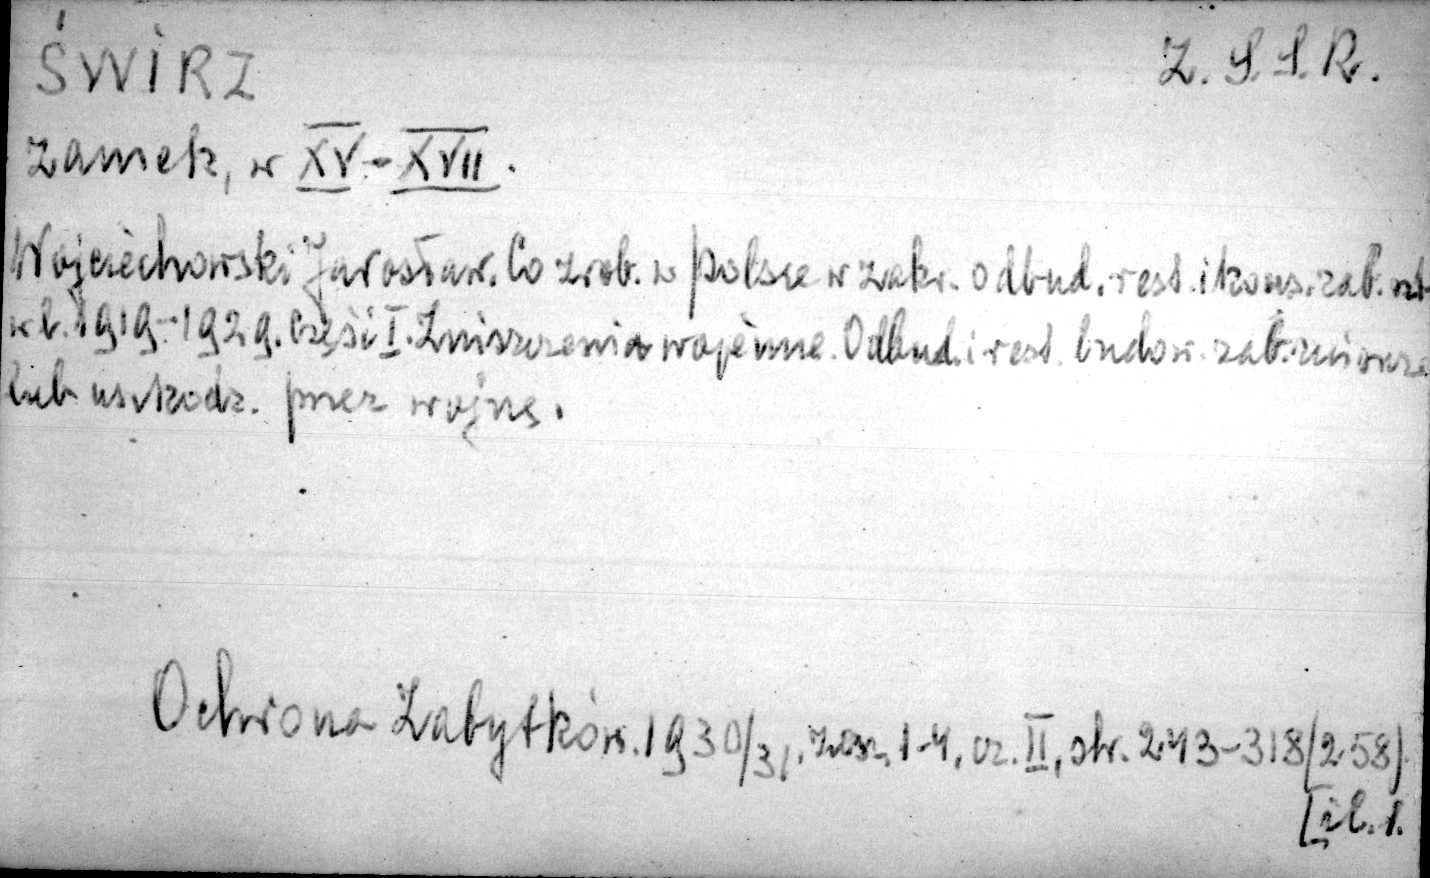 ŚWIRZ
Z.S.S.R.
zamek, w XV-XVII.
Wojciechowski Jarosław. Co zrob. w Polsce w zakr. odbud. rest. i kons. zab. szt.
w l. 1919-1929. Część I. Zniszczenia wojenne. Odbud. i rest. budow. zab. zniszcz.
lub uszkodz. przez wojnę.
Ochrona Zabytków. 1930/31, zesz. 1-4, cz. II, str. 243-318/258).
[il. 1.